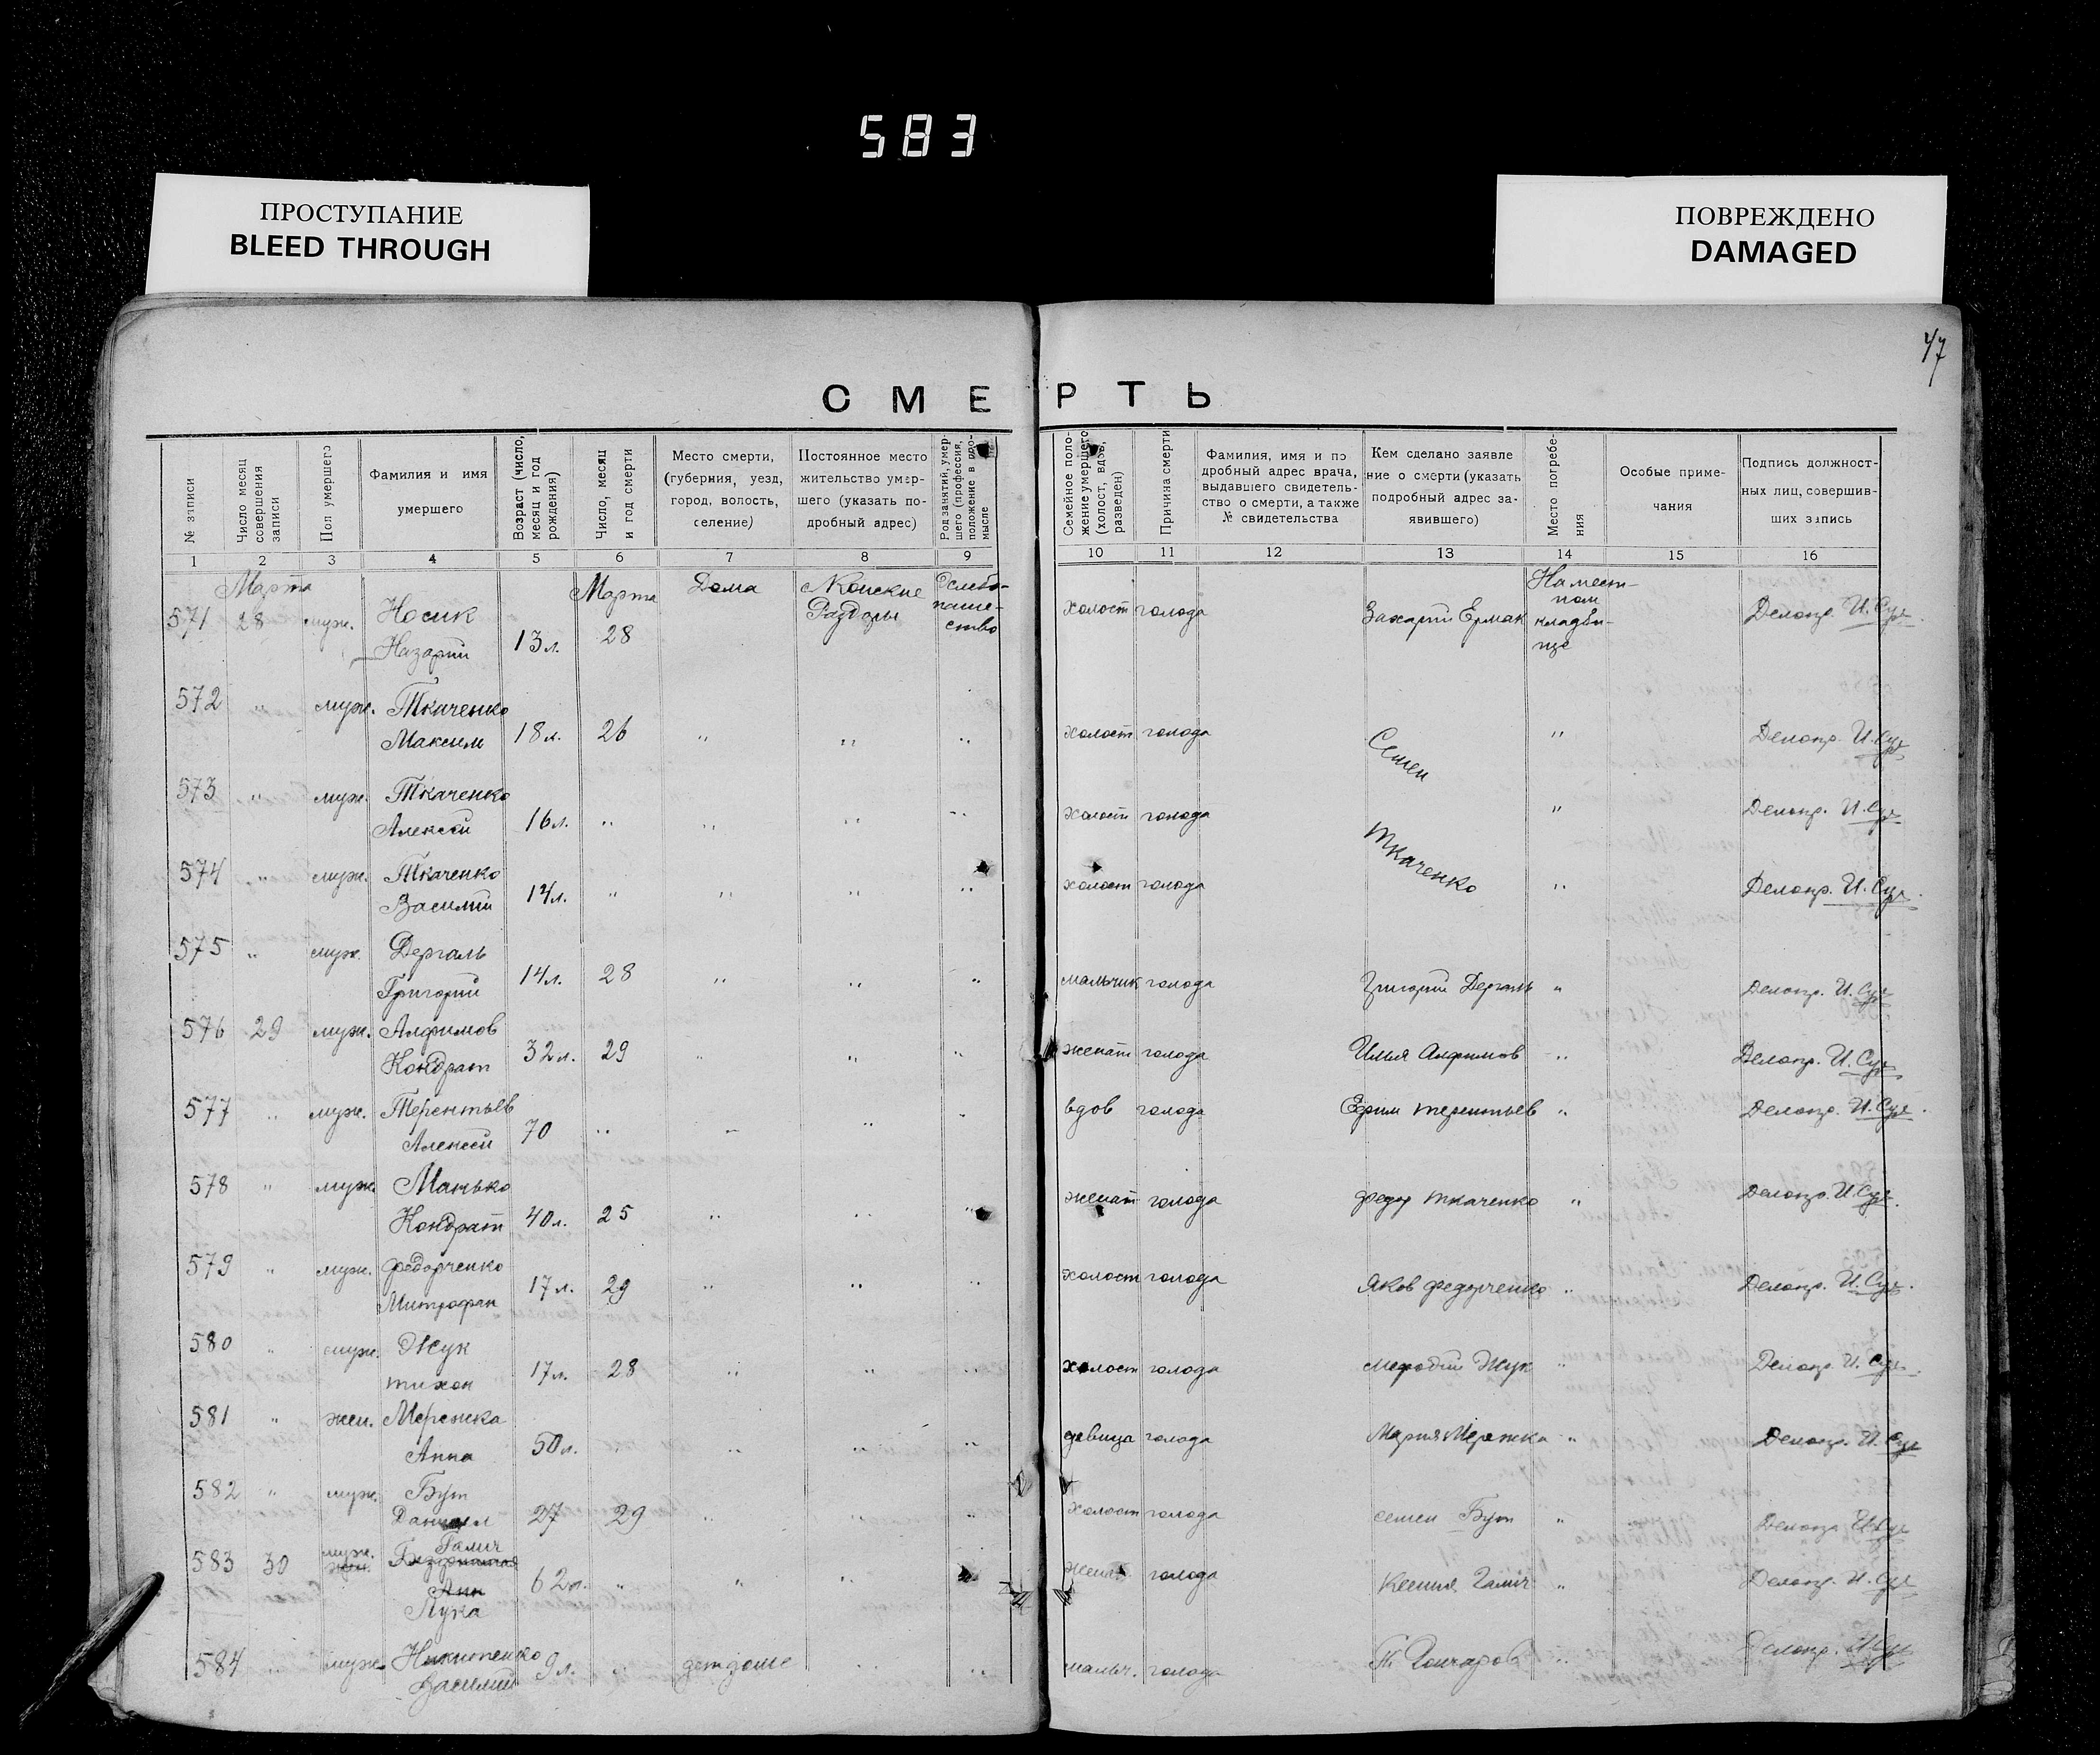 583
ПРОСТУПАНИЕ
BLEED THROUGH
ПОВРЕЖДЕНО
DAMAGED
47
СМЕРТЬ
№ записи
Число месяц совершения записи
Пол умершего
Фамилия и имя умершего
Возраст (число, месяц и год рождения)
Число, месяц и год смерти
Место смерти, (губерния, уезд, город, волость, селение)
Постоянное место жительство умершего (указать подробный адрес)
Род занятий, умершего (профессия, положение в промысле
Семейное положение умершего (холост, вдов, разведен)
Причина смерти
Фамилия, имя и подробный адрес врача, выдавшего свидетельство о смерти, а также № свидетельства
Кем сделано заявление о смерти (указать подробный адрес заявившего)
Место погребения
Особые примечания
Подпись должностных лиц, совершивших запись
1 2 3 4 5 6 7 8 9 10 11 12 13 14 15 16
571 Марта 28 муж. Носик Назарий 13 л. Марта 28 Дома Конские Раздоры холост голода Захарий Ермак На местном кладбище Делопр. И. Сух
572 " муж. Ткаченко Максим 18 л. 26 " " " холост голода Семен Ткаченко " Делопр. И. Сух
573 " муж. Ткаченко Алексей 16 л. " " " " холост голода " Делопр. И. Сух
574 " муж. Ткаченко Василий 14 л. " " " " холост голода " Делопр. И. Сух
575 " муж. Дергаль Григорий 14 л. 28 " " " мальчик голода Григорий Дергаль " Делопр. И. Сух
576 29 муж. Алфимов Кондрат 32 л. 29 " " " женат голода Илья Алфимов " Делопр. И. Сух
577 " муж. Терентьев Алексей 70 " " " " вдов голода Ефим Терентьев " Делопр. И. Сух
578 " муж. Манько Кондрат 40 л. 25 " " " женат голода Федор Ткаченко " Делопр. И. Сух
579 " муж. Федорченко Митрофан 17 л. 29 " " " холост голода Яков Федорченко " Делопр. И. Сух
580 " муж. Жук Тихон 17 л. 28 " " " холост голода Мефодий Жук " Делопр. И. Сух
581 " жен. Мережка Анна 50 л. " " " девица голода Мария Мережка " Делопр. И. Сух
582 " муж. Бут Даниил 27 29 " " " холост голода Семен Бут " Делопр. И. Сух
583 30 муж. Галич Лука 62 л. " " " женат голода Ксения Галич " Делопр. И. Сух
584 " муж. Никитенко Василий 9 л. " детдоме " " мальч. голода Гончаров " Делопр. И. Сух